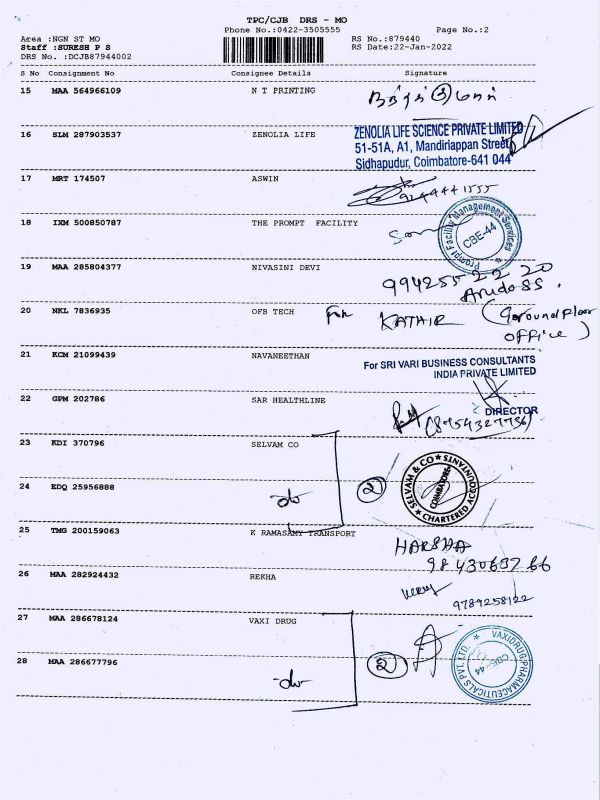 TPC/CJB DRS - MO
Phone No.:0422-3505555 Page No.:2
Area :NGN ST MO RS No.:879440
Staff :SURESH P S RS Date:22-Jan-2022
DRS No. :DCJB87944002
S No Consignment No Consignee Details Signature
15 MAA 564966109 N T PRINTING
16 SLM 287903537 ZENOLIA LIFE
ZENOLIA LIFE SCIENCE PRIVATE LIMITED
51-51A, A1, Mandiriappan Street,
Sidhapudur, Coimbatore-641 044
17 MRT 174507 ASWIN
18 IXM 500850787 THE PROMPT FACILITY
Prompt Facility Management Services
CBE-44
19 MAA 285804377 NIVASINI DEVI
994255 22 20
20 NKL 7836935 OFB TECH For KATHIR (Ground Floor
OFFICE)
21 KCM 21099439 NAVANEETHAN
For SRI VARI BUSINESS CONSULTANTS
INDIA PRIVATE LIMITED
22 GPM 202786 SAR HEALTHLINE
DIRECTOR
23 KDI 370796 SELVAM CO
SELVAM & CO
CHARTERED ACCOUNTANTS
COIMBATORE
24 EDQ 25956888 do 2
25 TMG 200159063 K RAMASAMY TRANSPORT
HARSHA
26 MAA 282924432 REKHA
9789258122
27 MAA 286678124 VAXI DRUG
VAXIDRUG PHARMACEUTICALS PVT. LTD.
CBE-44
28 MAA 286677796 do 2